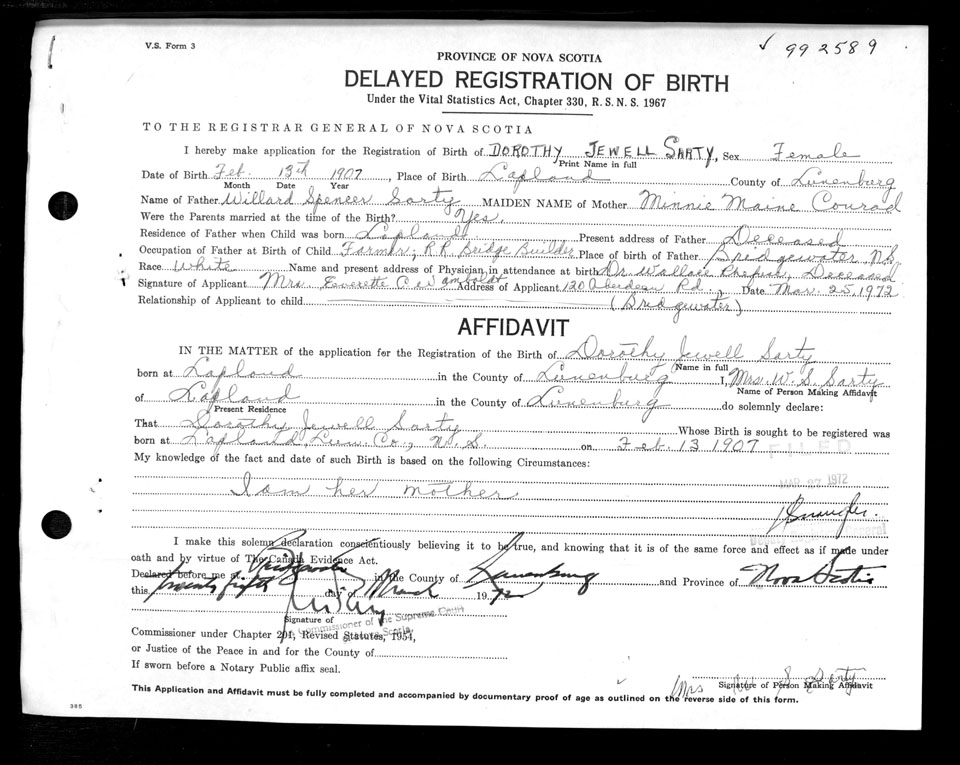 V.S. Form 3
✓ 992589
PROVINCE OF NOVA SCOTIA
DELAYED REGISTRATION OF BIRTH
Under the Vital Statistics Act, Chapter 330, R. S. N. S. 1967
TO THE REGISTRAR GENERAL OF NOVA SCOTIA
I hereby make application for the Registration of Birth of DOROTHY JEWELL SARTY, Sex Female
Print Name in full
Date of Birth Feb. 13th 1907, Place of Birth Lapland County of Lunenburg
Month Date Year
Name of Father Willard Spencer Sarty MAIDEN NAME of Mother Minnie Maine Conrad
Were the Parents married at the time of the Birth? Yes.
Residence of Father when Child was born Lapland Present address of Father Deceased
Occupation of Father at Birth of Child Farmer, R R Bridge Builder Place of birth of Father Bridgewater, N.S.
Race White Name and present address of Physician in attendance at birth Dr. Wallace, Deceased
Signature of Applicant Mrs. Everette C. Wamboldt Address of Applicant 120 Aberdean Rd. Date Mar. 25, 1972
Relationship of Applicant to child (Bridgewater)
AFFIDAVIT
IN THE MATTER of the application for the Registration of the Birth of Dorothy Jewell Sarty
Name in full
born at Lapland in the County of Lunenburg I, Mrs. W. S. Sarty
Name of Person Making Affidavit
of Lapland in the County of Lunenburg do solemnly declare:
Present Residence
That Dorothy Jewell Sarty Whose Birth is sought to be registered was
born at Lapland Lun. Co., N. S. on Feb. 13 1907
FILED
My knowledge of the fact and date of such Birth is based on the following Circumstances:
MAR 27 1972
I am her mother
I make this solemn declaration conscientiously believing it to be true, and knowing that it is of the same force and effect as if made under
oath and by virtue of The Canada Evidence Act.
Declared before me at Bridgewater in the County of Lunenburg and Province of Nova Scotia
this twenty fifth day of March 1972
Signature of
Commissioner of the Supreme Court
Commissioner under Chapter 201, Revised Statutes, 1954,
or Justice of the Peace in and for the County of
If sworn before a Notary Public affix seal.
Mrs W S Sarty
Signature of Person Making Affidavit
This Application and Affidavit must be fully completed and accompanied by documentary proof of age as outlined on the reverse side of this form.
385